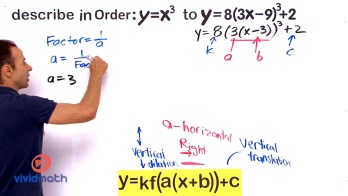 describe in Order: y=x³ to y=8(3x-9)³+2
y=8(3(x-3))³+2
k a b c
Factor=1/a
a=1/Fac
a=3
a-horizontal
Vertical
Right
Vertical
translation
y=kf(a(x+b))+c
vividmath